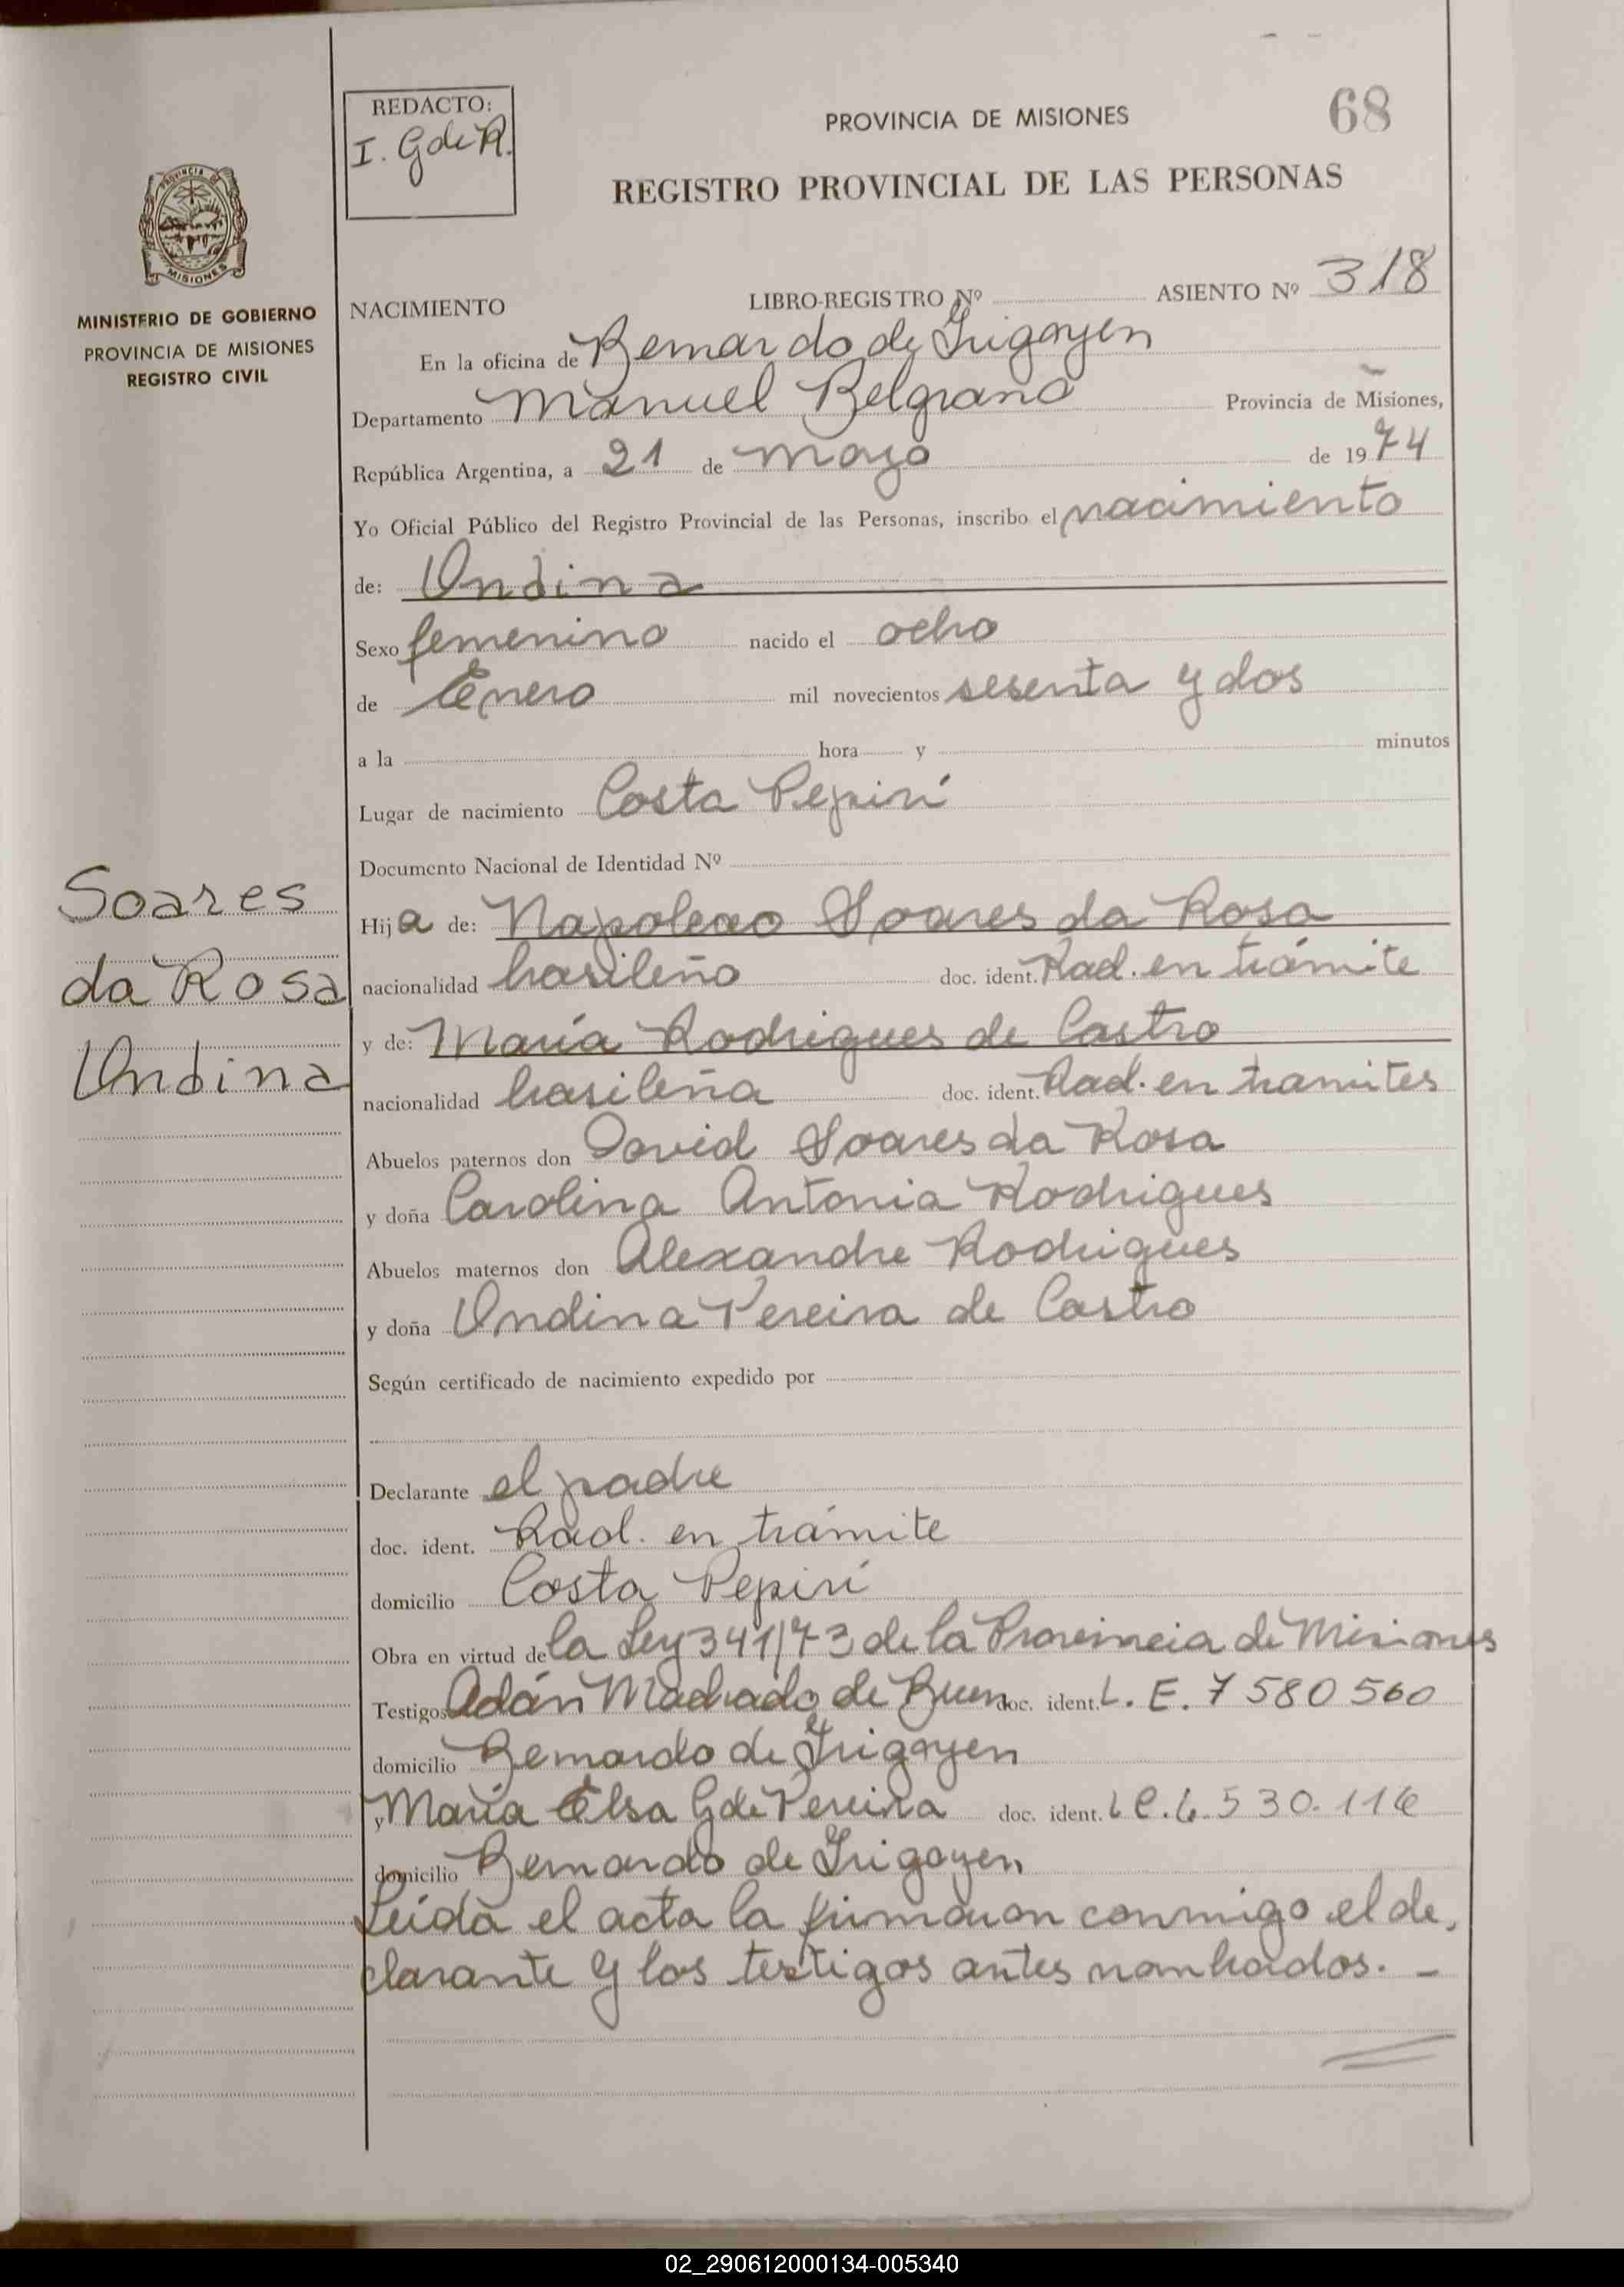 REDACTO:
I. G de R.
PROVINCIA DE MISIONES
68
REGISTRO PROVINCIAL DE LAS PERSONAS
PROVINCIA DE
MISIONES
MINISTERIO DE GOBIERNO
PROVINCIA DE MISIONES
REGISTRO CIVIL
NACIMIENTO LIBRO-REGISTRO Nº ASIENTO Nº 318
En la oficina de Bernardo de Irigoyen
Departamento Manuel Belgrano Provincia de Misiones,
República Argentina, a 21 de mayo de 1974
Yo Oficial Público del Registro Provincial de las Personas, inscribo el nacimiento
de: Undina
Sexo femenino nacido el ocho
de Enero mil novecientos sesenta y dos
a la hora y minutos
Lugar de nacimiento Costa Pepirí
Documento Nacional de Identidad Nº
Soares
da Rosa
Undina
Hija de: Napoleao Soares da Rosa
nacionalidad brasileño doc. ident. Rad. en trámite
y de: María Rodrigues de Castro
nacionalidad brasileña doc. ident. Rad. en tramites
Abuelos paternos don David Soares da Rosa
y doña Carolina Antonia Rodrigues
Abuelos maternos don Alexandre Rodrigues
y doña Undina Pereira de Castro
Según certificado de nacimiento expedido por
Declarante el padre
doc. ident. Rad. en trámite
domicilio Costa Pepirí
Obra en virtud de la Ley 341/73 de la Provincia de Misiones
Testigos Adán Machado de Buen doc. ident. L. E. 7 580 560
domicilio Bernardo de Irigoyen
y María Elsa G de Pereira doc. ident. L C. 6.530.116
domicilio Bernardo de Irigoyen
Leída el acta la firmaron conmigo el de,
clarante y los testigos antes nombrados. -
02_290612000134-005340